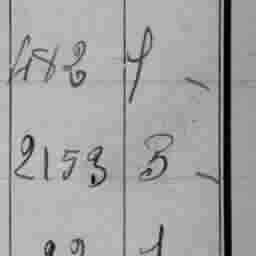 482 1
2153 3